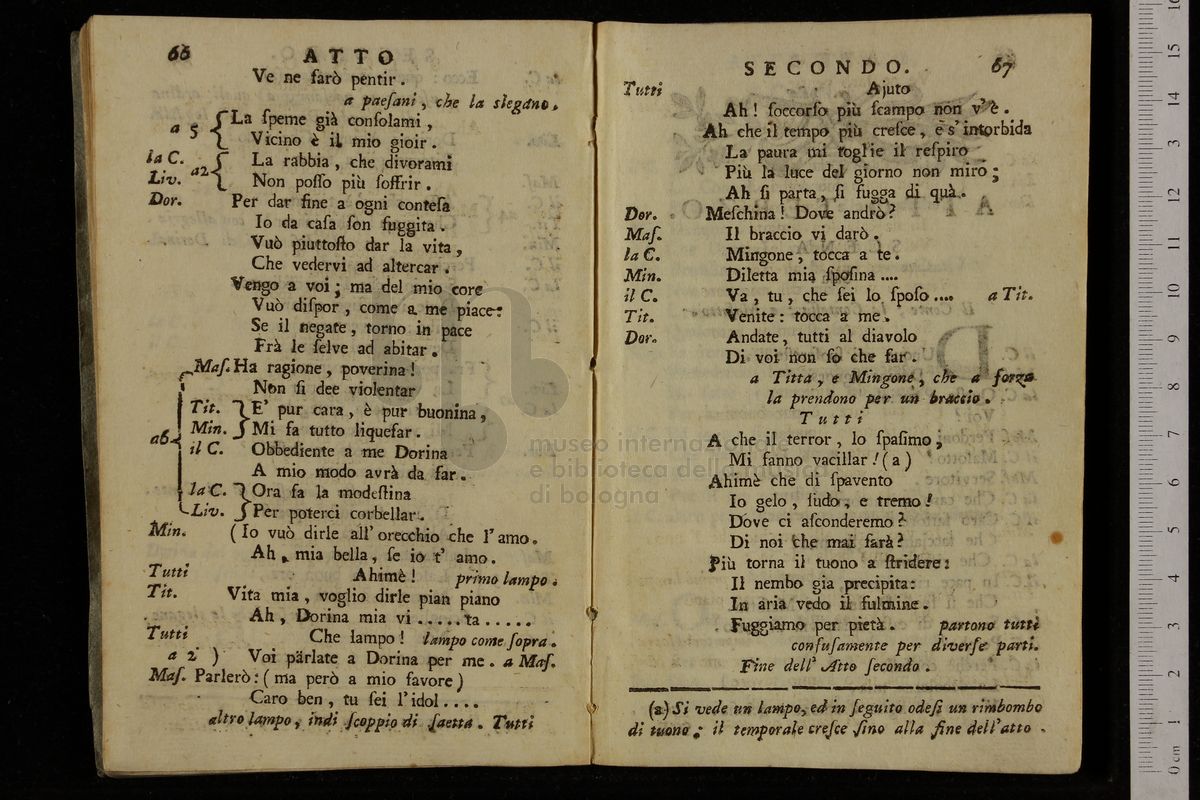 66 ATTO
Ve ne farò pentir.
a paeſani, che la slegano.
a 5 La ſpeme già conſolami,
Vicino è il mio gioir.
la C. La rabbia, che divorami
Liv. a2 Non poſſo più ſoffrir.
Dor. Per dar fine a ogni conteſa
Io da caſa ſon fuggita.
Vuò piuttoſto dar la vita,
Che vedervi ad altercar.
Vengo a voi; ma del mio core
Vuò diſpor, come a me piace:
Se il negate, torno in pace
Frà le ſelve ad abitar.
Maſ. Ha ragione, poverina!
Non ſi dee violentar
Tit. E' pur cara, è pur buonina,
Min. Mi fa tutto liquefar.
a6 il C. Obbediente a me Dorina
A mio modo avrà da far.
la C. Ora fa la modeſtina
Liv. Per poterci corbellar.
Min. (Io vuò dirle all' orecchio che l'amo.
Ah, mia bella, ſe io t' amo.
Tutti Ahimè! primo lampo.
Tit. Vita mia, voglio dirle pian piano
Ah, Dorina mia vi......ta.....
Tutti Che lampo! lampo come ſopra.
a 2 ) Voi parlate a Dorina per me. a Maſ.
Maſ. Parlerò: (ma però a mio favore)
Caro ben, tu ſei l'idol....
altro lampo, indi ſcoppio di ſaetta. Tutti
SECONDO. 67
Tutti Ajuto
Ah! ſoccorſo più ſcampo non v'è.
Ah che il tempo più creſce, e s'intorbida
La paura mi toglie il reſpiro
Più la luce del giorno non miro;
Ah ſi parta, ſi fugga di quà.
Dor. Meſchina! Dove andrò?
Maſ. Il braccio vi darò.
la C. Mingone, tocca a te.
Min. Diletta mia ſpoſina....
il C. Va, tu, che ſei lo ſpoſo.... a Tit.
Tit. Venite: tocca a me.
Dor. Andate, tutti al diavolo
Di voi non ſò che far.
a Titta, e Mingone, che a forza
la prendono per un braccio.
Tutti
A che il terror, lo ſpaſimo,
Mi fanno vacillar! (a)
Ahimè che di ſpavento
Io gelo, ſudo, e tremo!
Dove ci aſconderemo?
Di noi che mai ſarà?
Più torna il tuono a ſtridere:
Il nembo gia precipita:
In aria vedo il fulmine.
Fuggiamo per pietà. partono tutti
confuſamente per diverſe parti.
Fine dell' Atto ſecondo.
(a) Si vede un lampo, ed in ſeguito odeſi un rimbombo
di tuono; il temporale creſce ſino alla fine dell'atto.
museo internazionale
e biblioteca della musica
di bologna